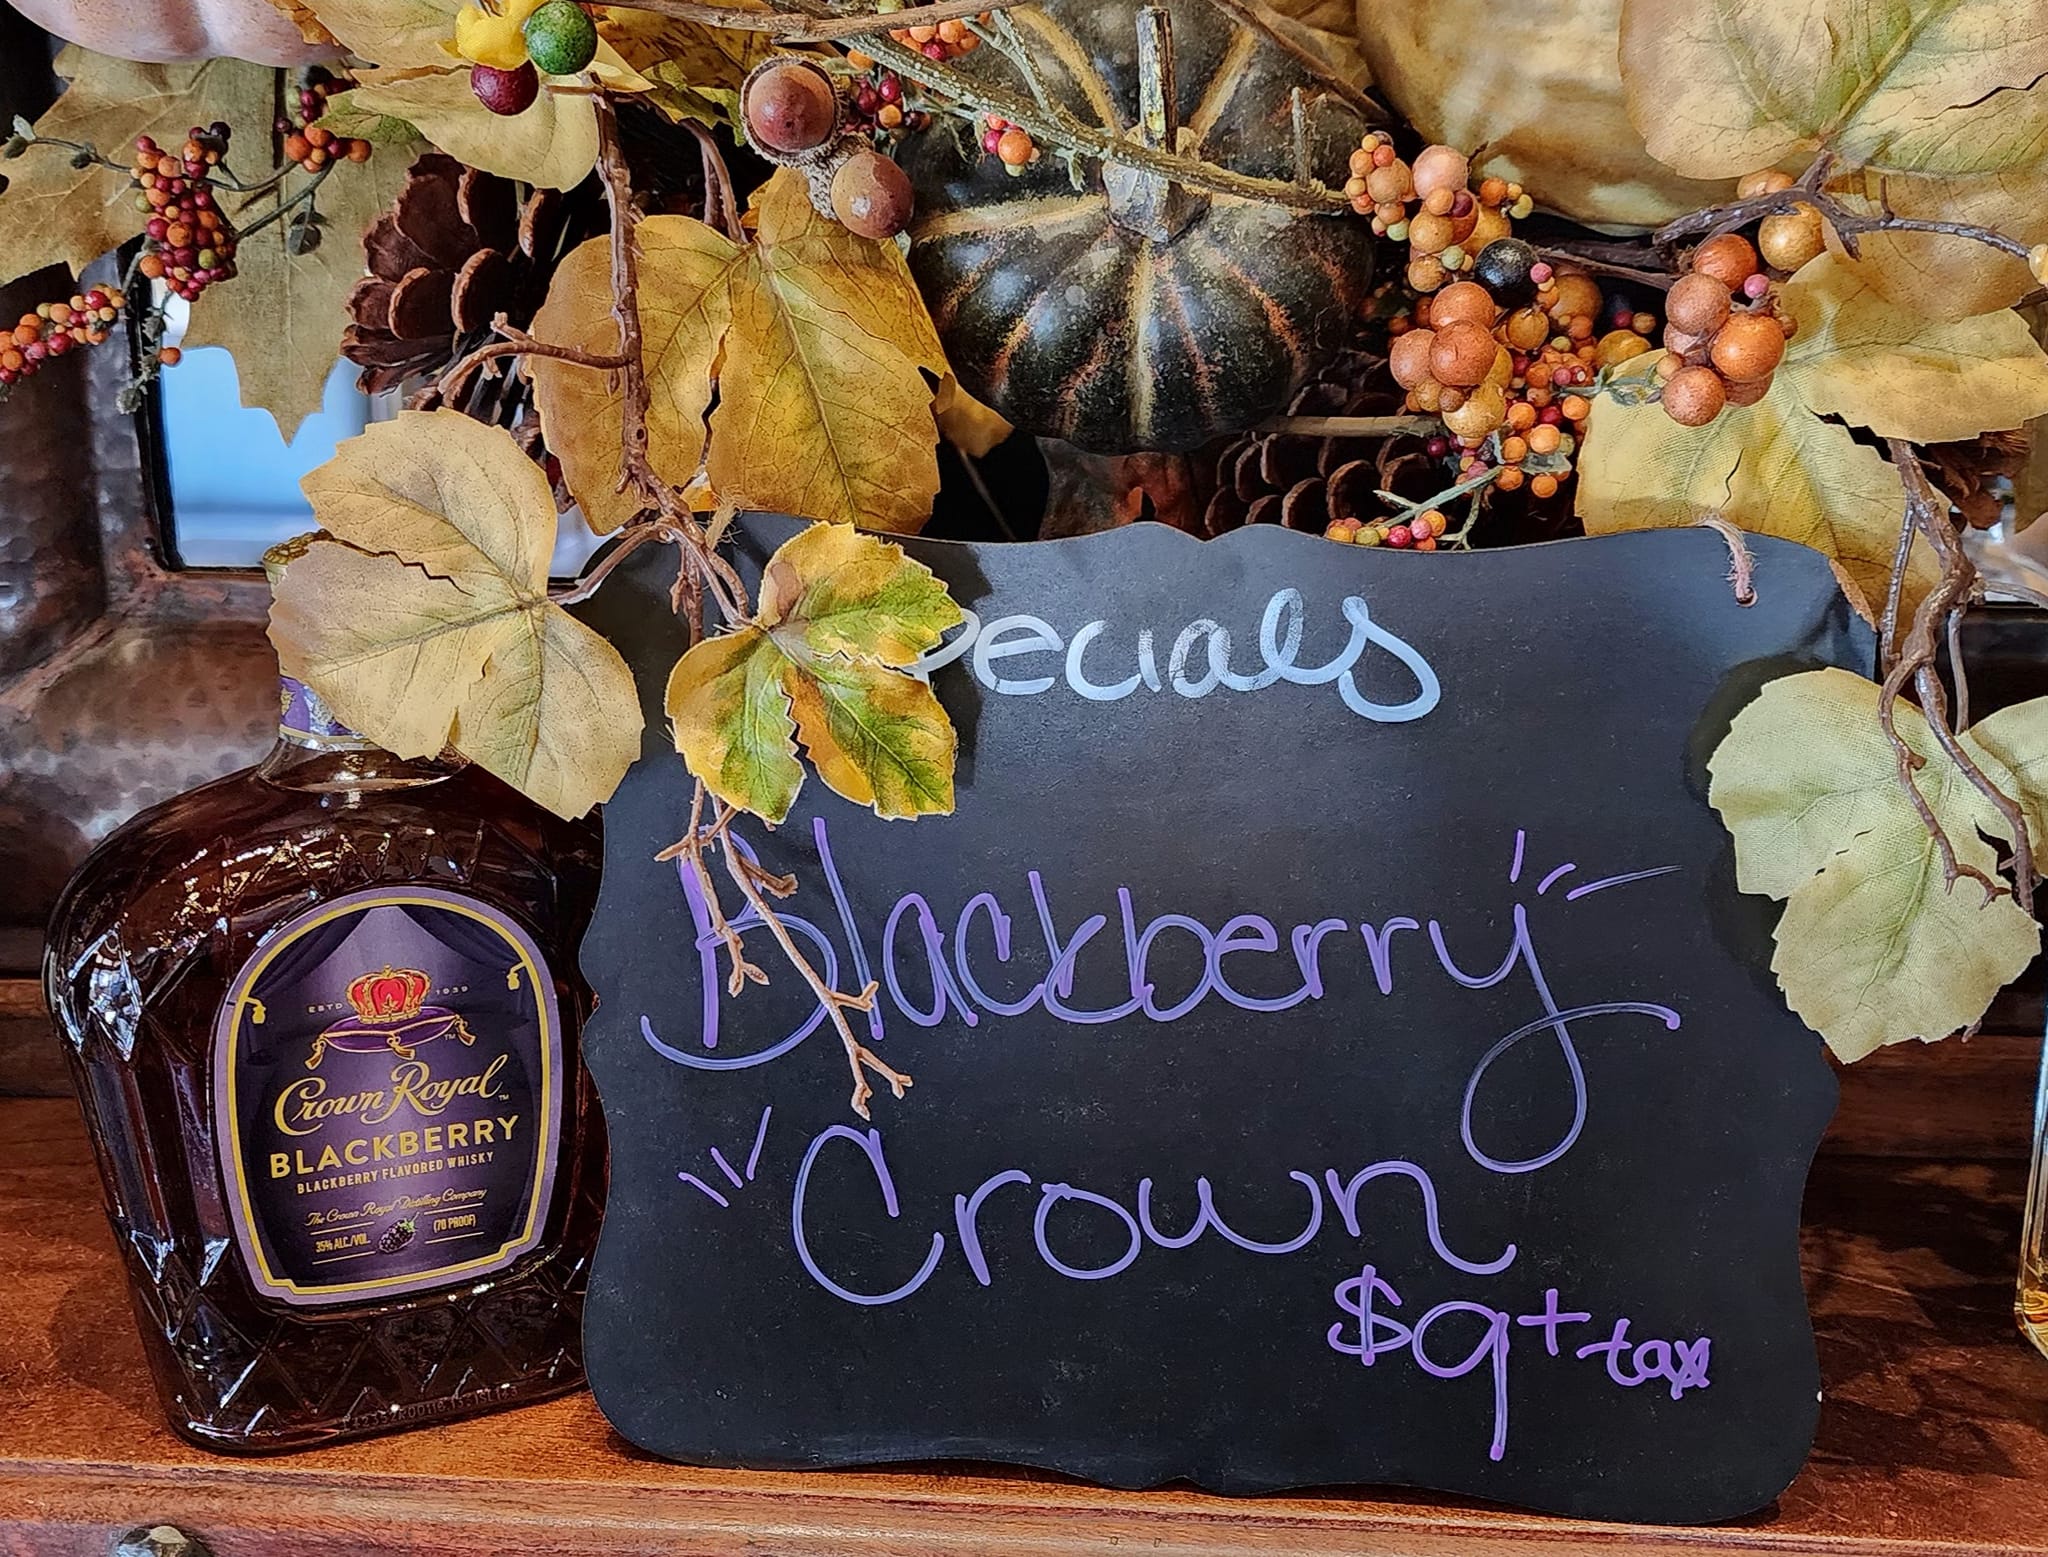 Specials
Blackberry
Crown
$9+tax
ESTD 1939
Crown Royal™
BLACKBERRY
BLACKBERRY FLAVORED WHISKY
The Crown Royal Distilling Company
35% ALC./VOL. (70 PROOF)